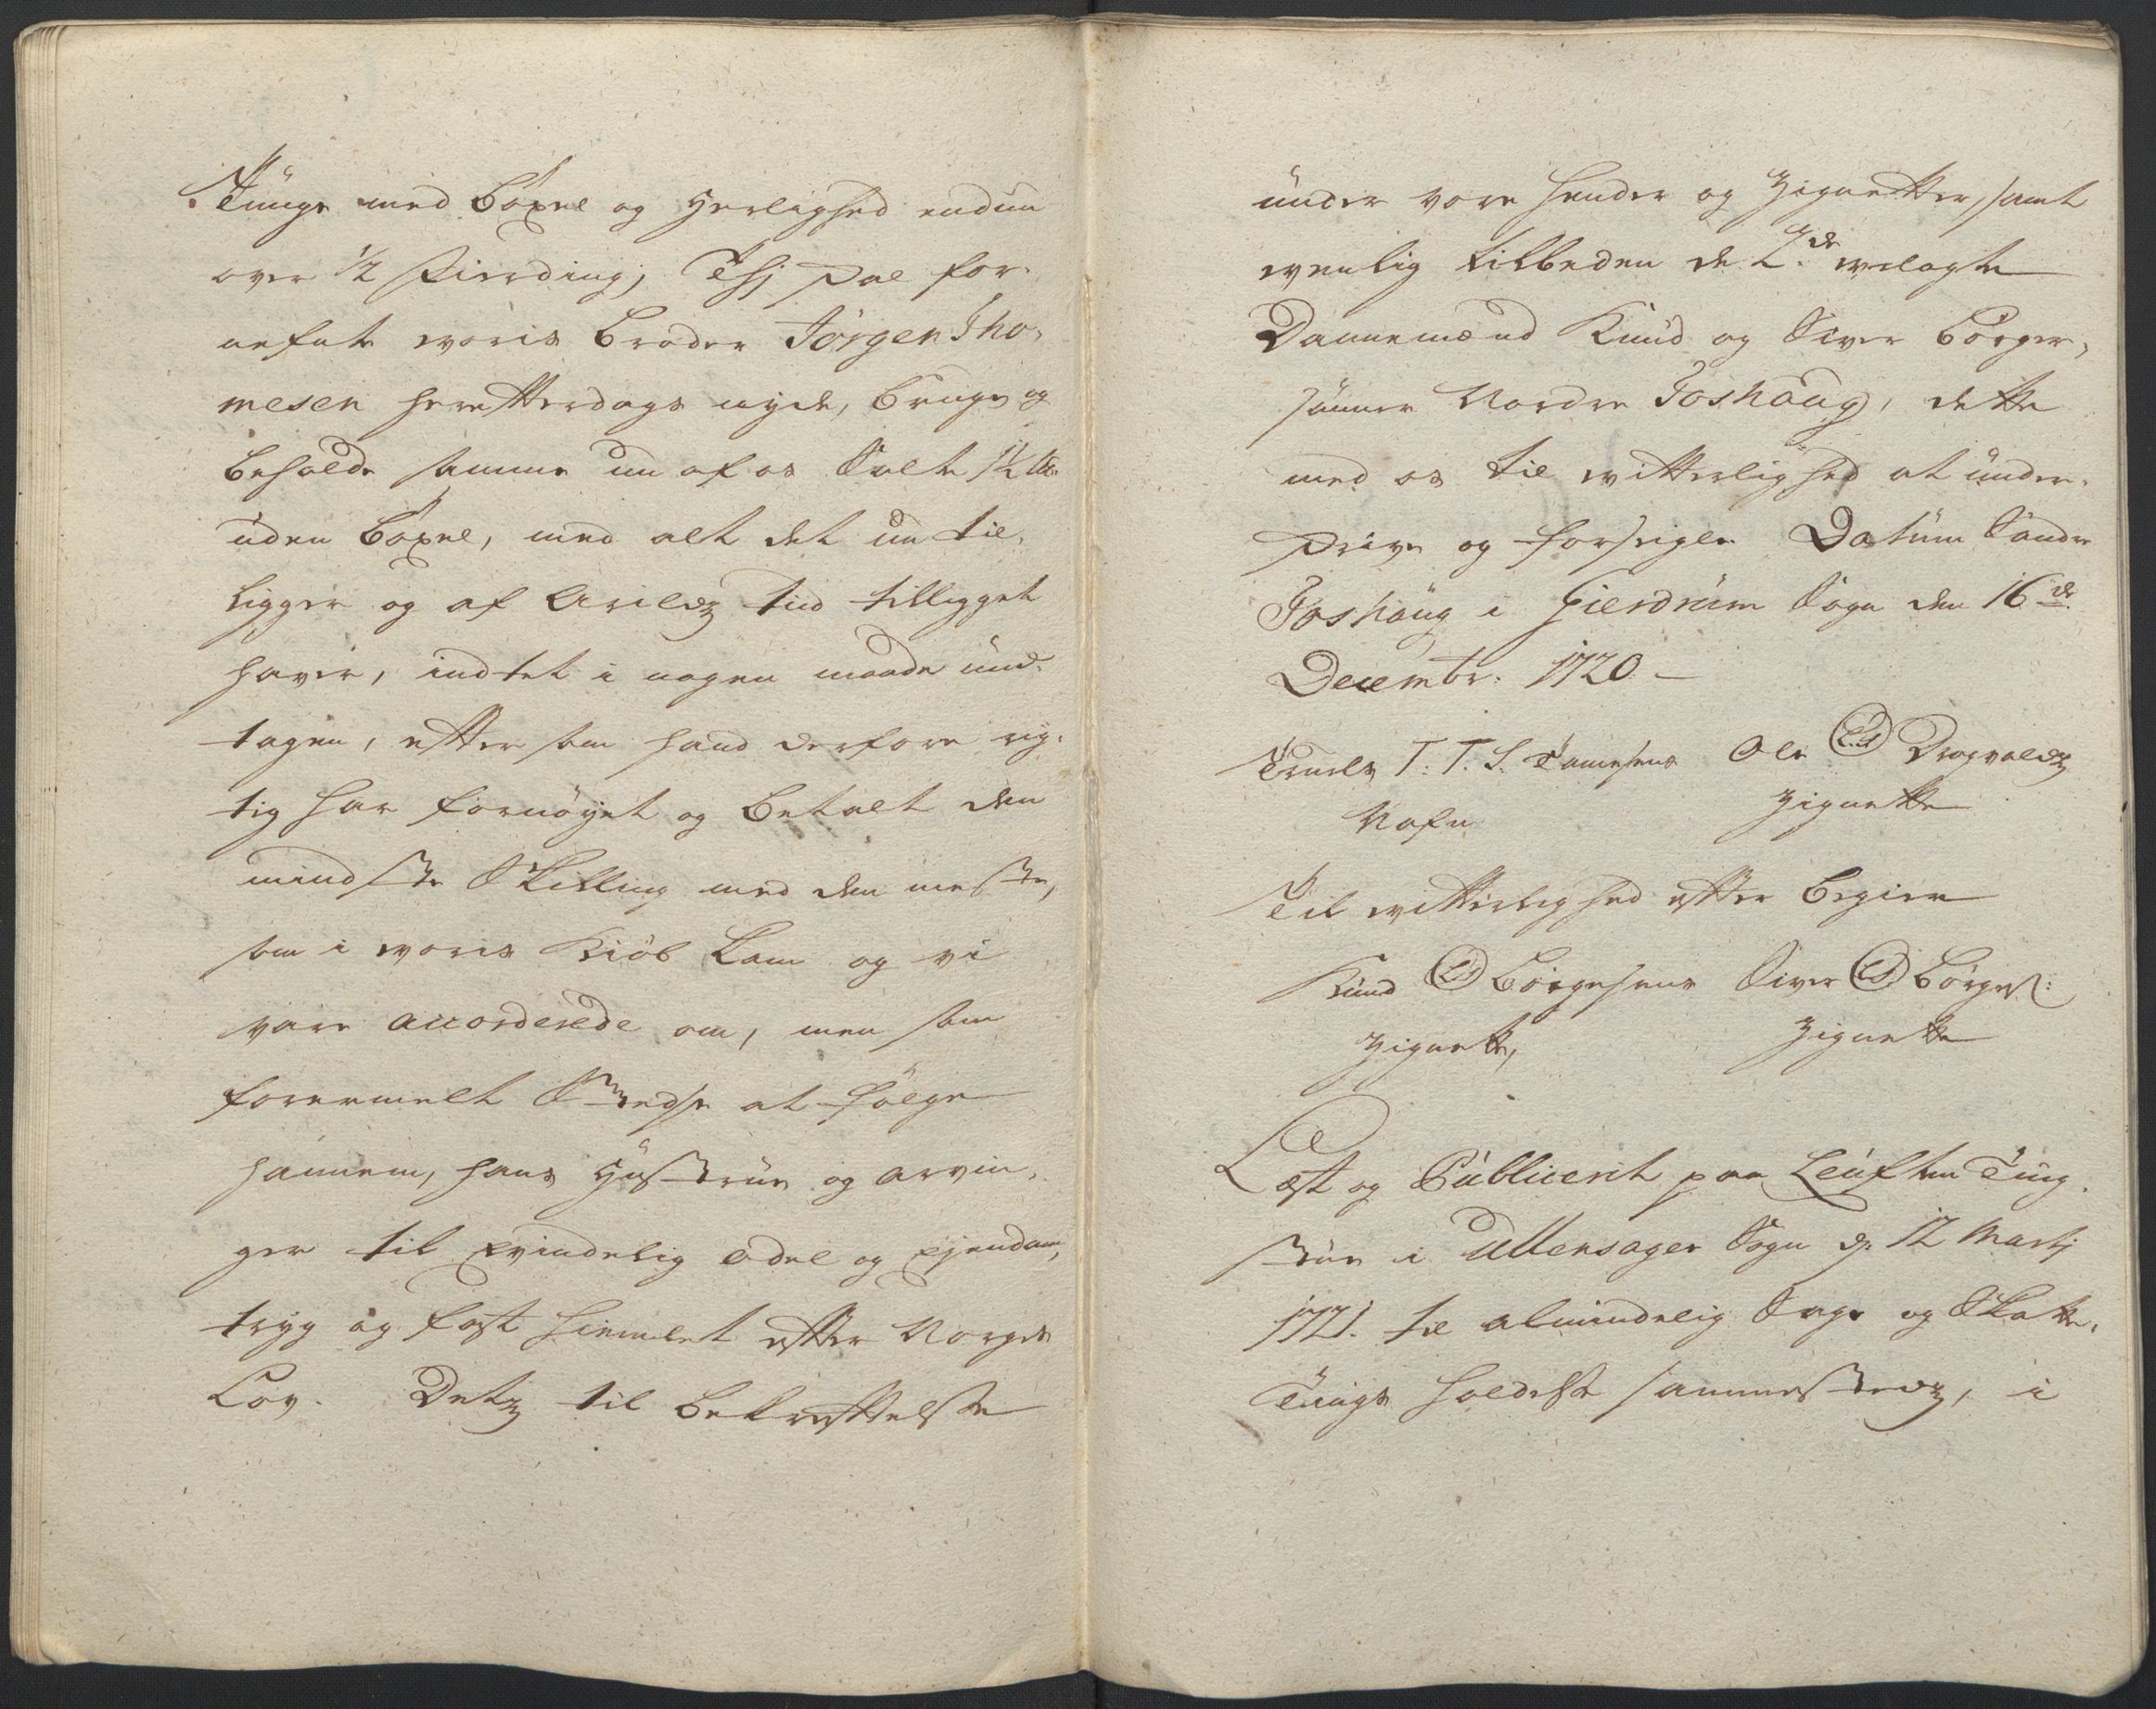 Tunge med böxel og Herlighed endnu
over 1/2 Fierding; Thj skal for-
nefnte woris broder Jörgen Tho-
mesen herefterdags nyde, bruge og
beholde samme nu af os Solte 1/2 
uden böxel, med alt det nu til-
ligger og af Arildz tiid tilligget
haver, indtet i nogen maade und-
tagen, efter som hand derfore rig-
tig har fornöyet og betalt den
mindste Skilling med den meste,
som i woris Kiöb kom og vi
vare accorderede om, men som
forermelt Stedse at fölge
hannem, hans Hustrue og arvin-
ger til Ewindelig odel og Ejendom,
tryg og fast hiemlet efter Norges
Lov. Detz til bekreftelse
under vore hender og Zignetter, samt
wenlig tilbeden de 2de welagte
Dannemænd Knud og Siver börger-
sönner Nordre Foshaug, dette
med os til witterlighed at under-
skrive og forsegle Datum Söndre
Foshaug i Gierdrum Sogn den 16de
Decembr: 1720 –
Truels T. T. S. Tomesens Ole L.S. Dragvoldz
Nafn Zignette
Til witterlighed efter begier
Knud L.S. Börgesens Siver L.S. börges:
Zignette, Zignette
Læst og Publicerit paa Leuften Ting-
stue i Ullensager Sogn d. 12 Martj
1721. til almindelig Sage og Skatte-
Tinge holdelse sammestedz, i